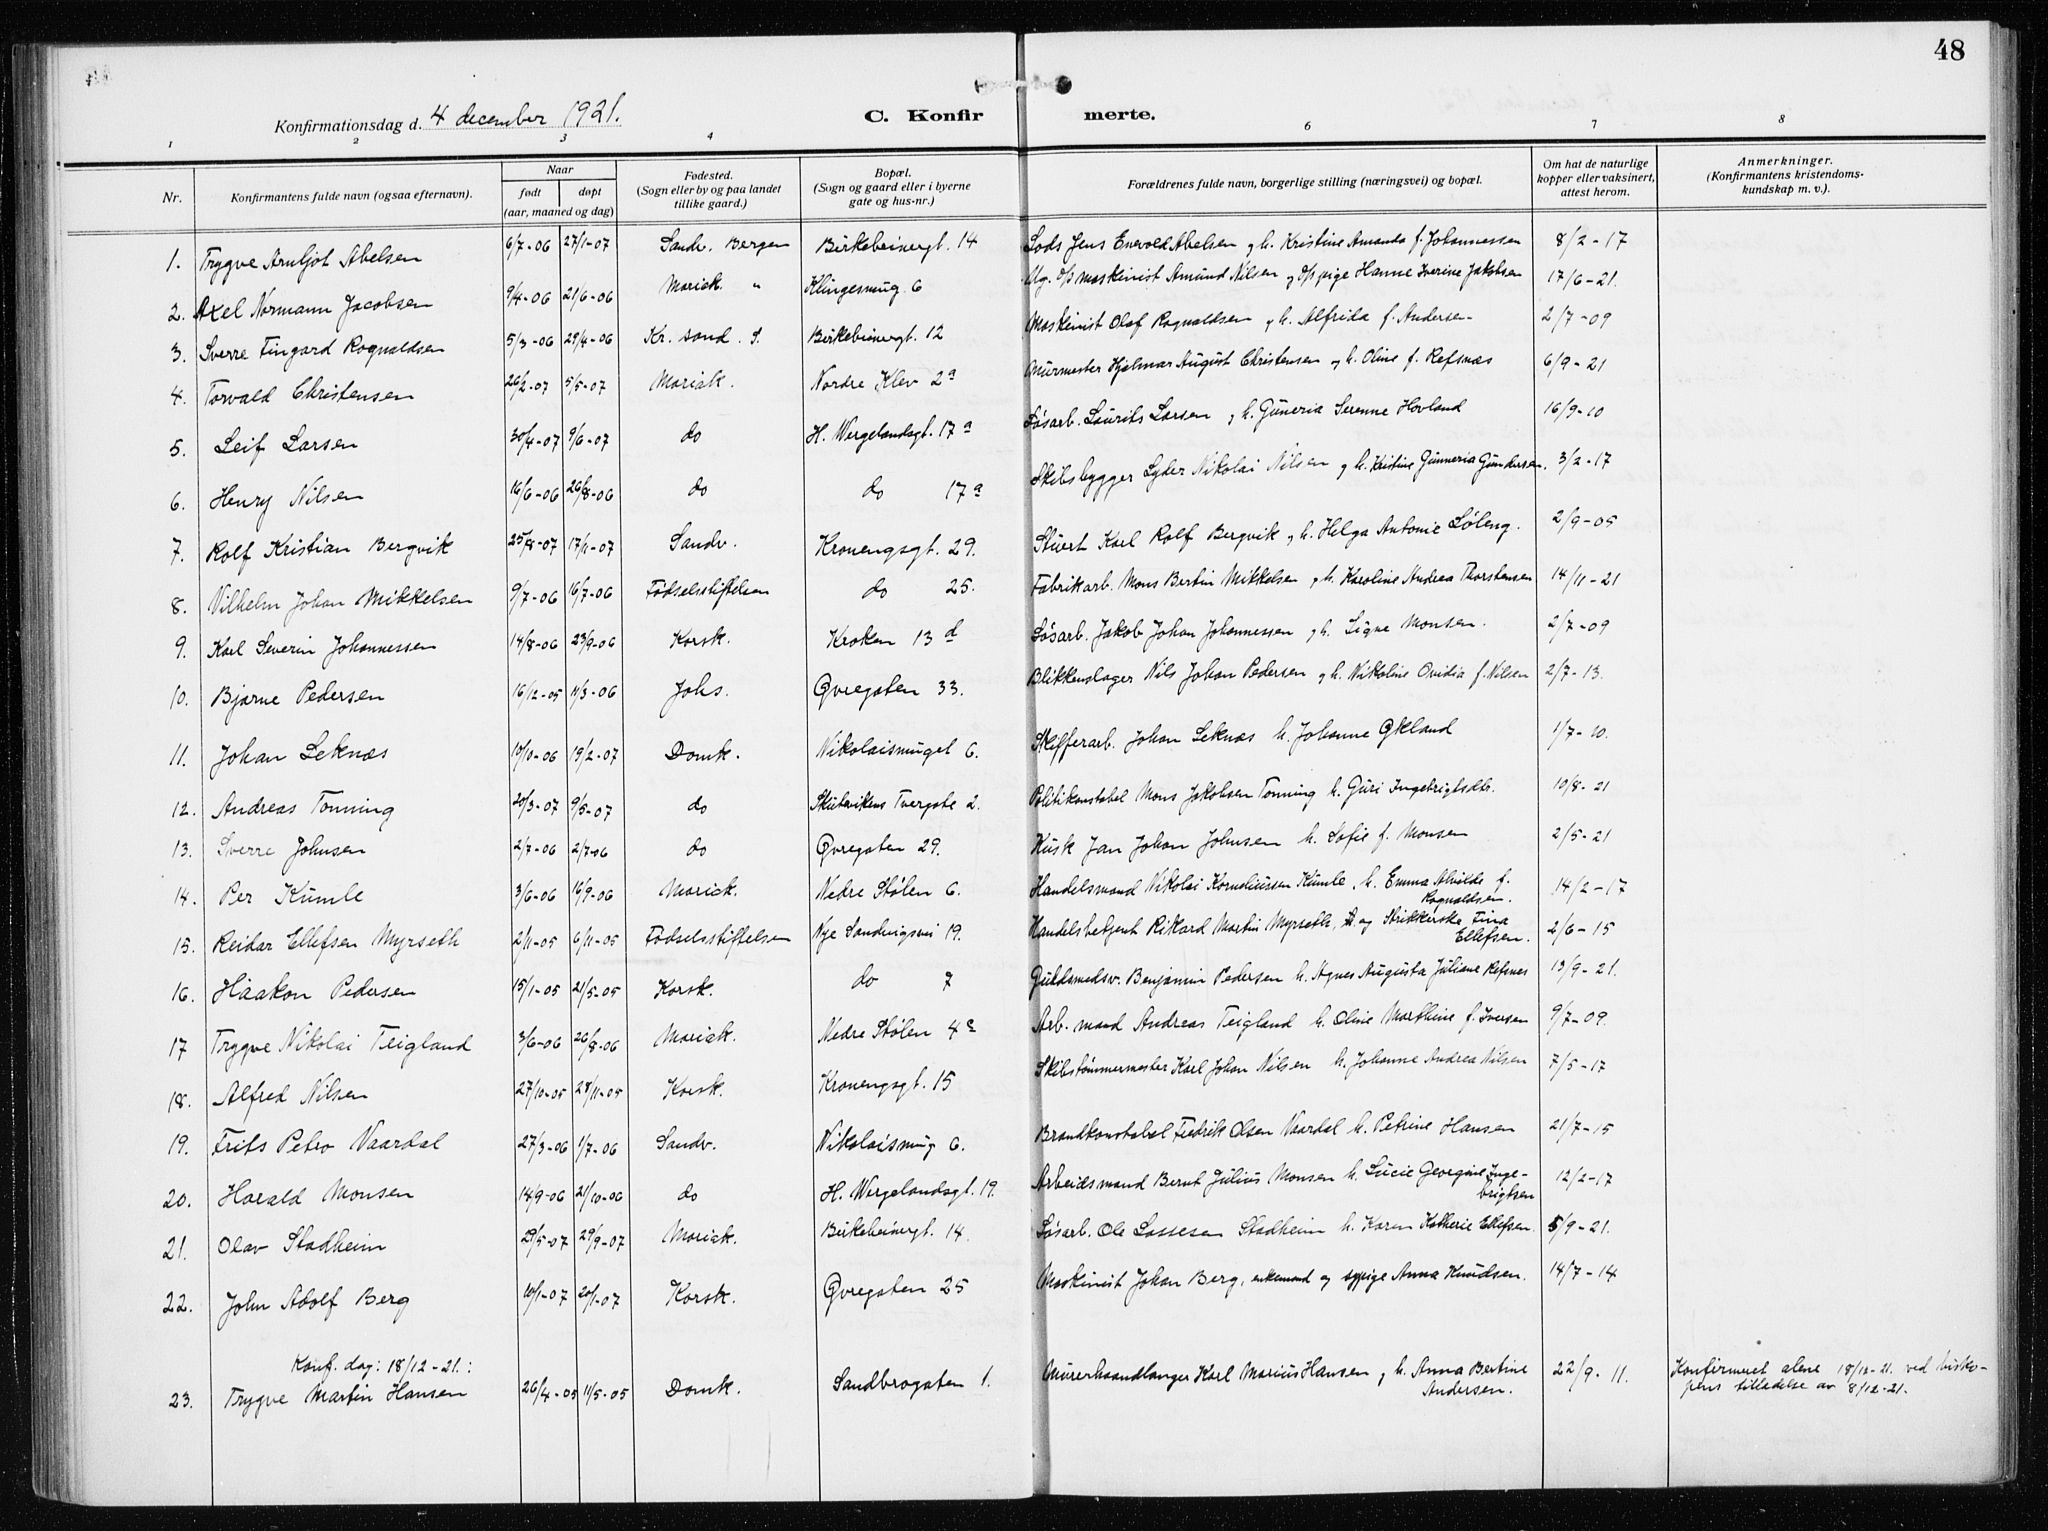 48
Konfirmationsdag d. 4 december 1921.
C. Konfirmerte.
1 2 3 4 6 7 8
Nr. Konfirmantens fulde navn (ogsaa efternavn). Naar født døpt (aar, maaned og dag) Fødested. (Sogn eller by og paa landet tillike gaard.) Bopæl. (Sogn og gaard eller i byerne gate og hus-nr.) Forældrenes fulde navn, borgerlige stilling (næringsvei) og bopæl. Om hat de naturlige kopper eller vaksinert, attest herom. Anmerkninger. (Konfirmantens kristendomskundskap m. v.).
1. Trygve Arnljot Abelsen 6/7-06 27/1-07 Sandv. Bergen Birkebeinergt. 14 Lods Jens Enevold Abelsen og h. Kristine Amanda f. Johannessen 8/2-17
2. Axel Normann Jacobsen 9/4-06 21/6-06 Mariak. " Klingesmug 6 Ug. Op maskinist Amund Nilsen og Op pige Hanne Iverine Jakobsen 17/6-21.
3. Sverre Fingard Rognaldsen 5/3-06 29/4-06 Kr. sand. S. Birkebeinergt. 12 Maskinist Olaf Rognaldsen og h. Alfrida f. Andersen 2/7-09
4. Torvald Christensen 26/2-07 5/5-07 Mariak. Nordre Klev 2a Murmester Hjalmar August Christensen og h. Oline f. Refsnæs 6/9-21
5. Leif Larsen 30/4-07 9/6-07 do H. Wergelandsgt. 17a Løsarb. Laurits Larsen og h. Guneria Serenne Hovland 16/9-10
6. Henry Nilsen 16/6-06 26/8-06 do do 17a Skibsbygger Lyder Nikolai Nilsen og h. Kristine Gunneria Gundersen. 3/2-17
7. Rolf Kristian Bergvik 25/8-07 17/11-07 Sandv. Kronengsgt. 29. Stuert Karl Rolf Bergvik og h. Helga Antonie Løleng. 2/9-05
8. Vilhelm Johan Mikkelsen 9/7-06 16/7-06 Fødselsstiftelsen do 25. Fabrikarb. Mons Bertin Mikkelsen og h. Karoline Andrea Thorstensen 14/11-21
9. Karl Severin Johannessen 14/8-06 23/9-06 Korsk. Kroken 13 d Løsarb. Jakob Johan Johannessen og h. Signe Monsen. 2/7-09
10. Bjarne Pedersen 16/12-05 11/3-06 Johs. Øvregaten 33. Blikkenslager Nils Johan Pedersen og h. Nikoline Ovidia f. Nilsen 2/7-13.
11. Johan Leknæs 19/10-06 19/2-07 Domk. Nikolaismuget 6. Skifferarb. Johan Leknæs h. Johanne Økland 1/7-10.
12. Andreas Tonning 20/3-07 9/5-07 do Skutevikens Tvergate 2. Politikonstabel Mons Jakobsen Tonning h. Guri Ingebrigtsdtr. 10/8-21
13. Sverre Johnsen 2/7-06 2/7-06 do Øvregaten 29. Kusk Jan Johan Johnsen h. Sofie f. Monsen 2/5-21
14. Per Kumle 3/6-06 16/9-06 Mariak. Nedre Stølen 6. Handelsmand Nikolai Korneliussen Kumle, h. Emma Alvilde f. Rognaldsen. 14/2-17
15. Reidar Ellefsen Myrseth 2/11-05 6/11-05 Fødselsstiftelsen Nye Sandvigsvei 19. Handelsbetjent Rikard Martin Myrseth, og Strikkerske Tina Ellefsen. 2/6-15
16. Haakon Pedersen 15/1-05 21/5-05 Korsk. do 7 Guldsmedsv. Benjamin Pedersen h. Agnes Augusta Juliane Refsnes 13/9-21.
17 Trygve Nikolai Teigland 3/6-06 26/8-06 Mariak. Nedre Stølen 4a Arb. mand Andreas Teigland h. Oline Marthine f. Iversen 9/7-09.
18. Alfred Nilsen 27/10-05 28/11-05 Korsk. Kronengsgt. 15 Skibstømmermester Karl Johan Nilsen h. Johanne Andrea Nilsen 7/5-17
19. Frits Petro Vaardal 27/3-06 1/7-06 Sandv. Nikolaismug 6. Brandkonstabel Fredrik Olsen Vaardal h. Petrine Hansen 21/7-15
20. Harald Monsen 14/9-06 21/10-06 do H. Wergelandsgt. 19. Arbeidsmand Bernt Julius Monsen h. Lucie Georgine Ingebrigtsen 12/2-17
21. Olav Stadheim 29/5-07 29/9-07 Mariak. Birkebeinergt. 14. Løsarb. Ole Lassesen Stadheim h. Karen Katherie Ellefsen. 5/9-21.
22. John Adolf Berg 10/1-07 20/1-07 Korsk. Øvregaten 25 Maskinist Johan Berg, enkemand og sypige Anna Knudsen. 14/7-14
Konf. dag: 18/12-21.:
23. Trygve Martin Hansen 26/4-05 11/5-05 Domk. Sandbrogaten 1. Murerhaandlanger Karl Marius Hansen og h. Anna Bertine Andersen. 22/9-11. Konfirmeret alene 18/12-21. ved biskopens tilladelse av 8/12-21.